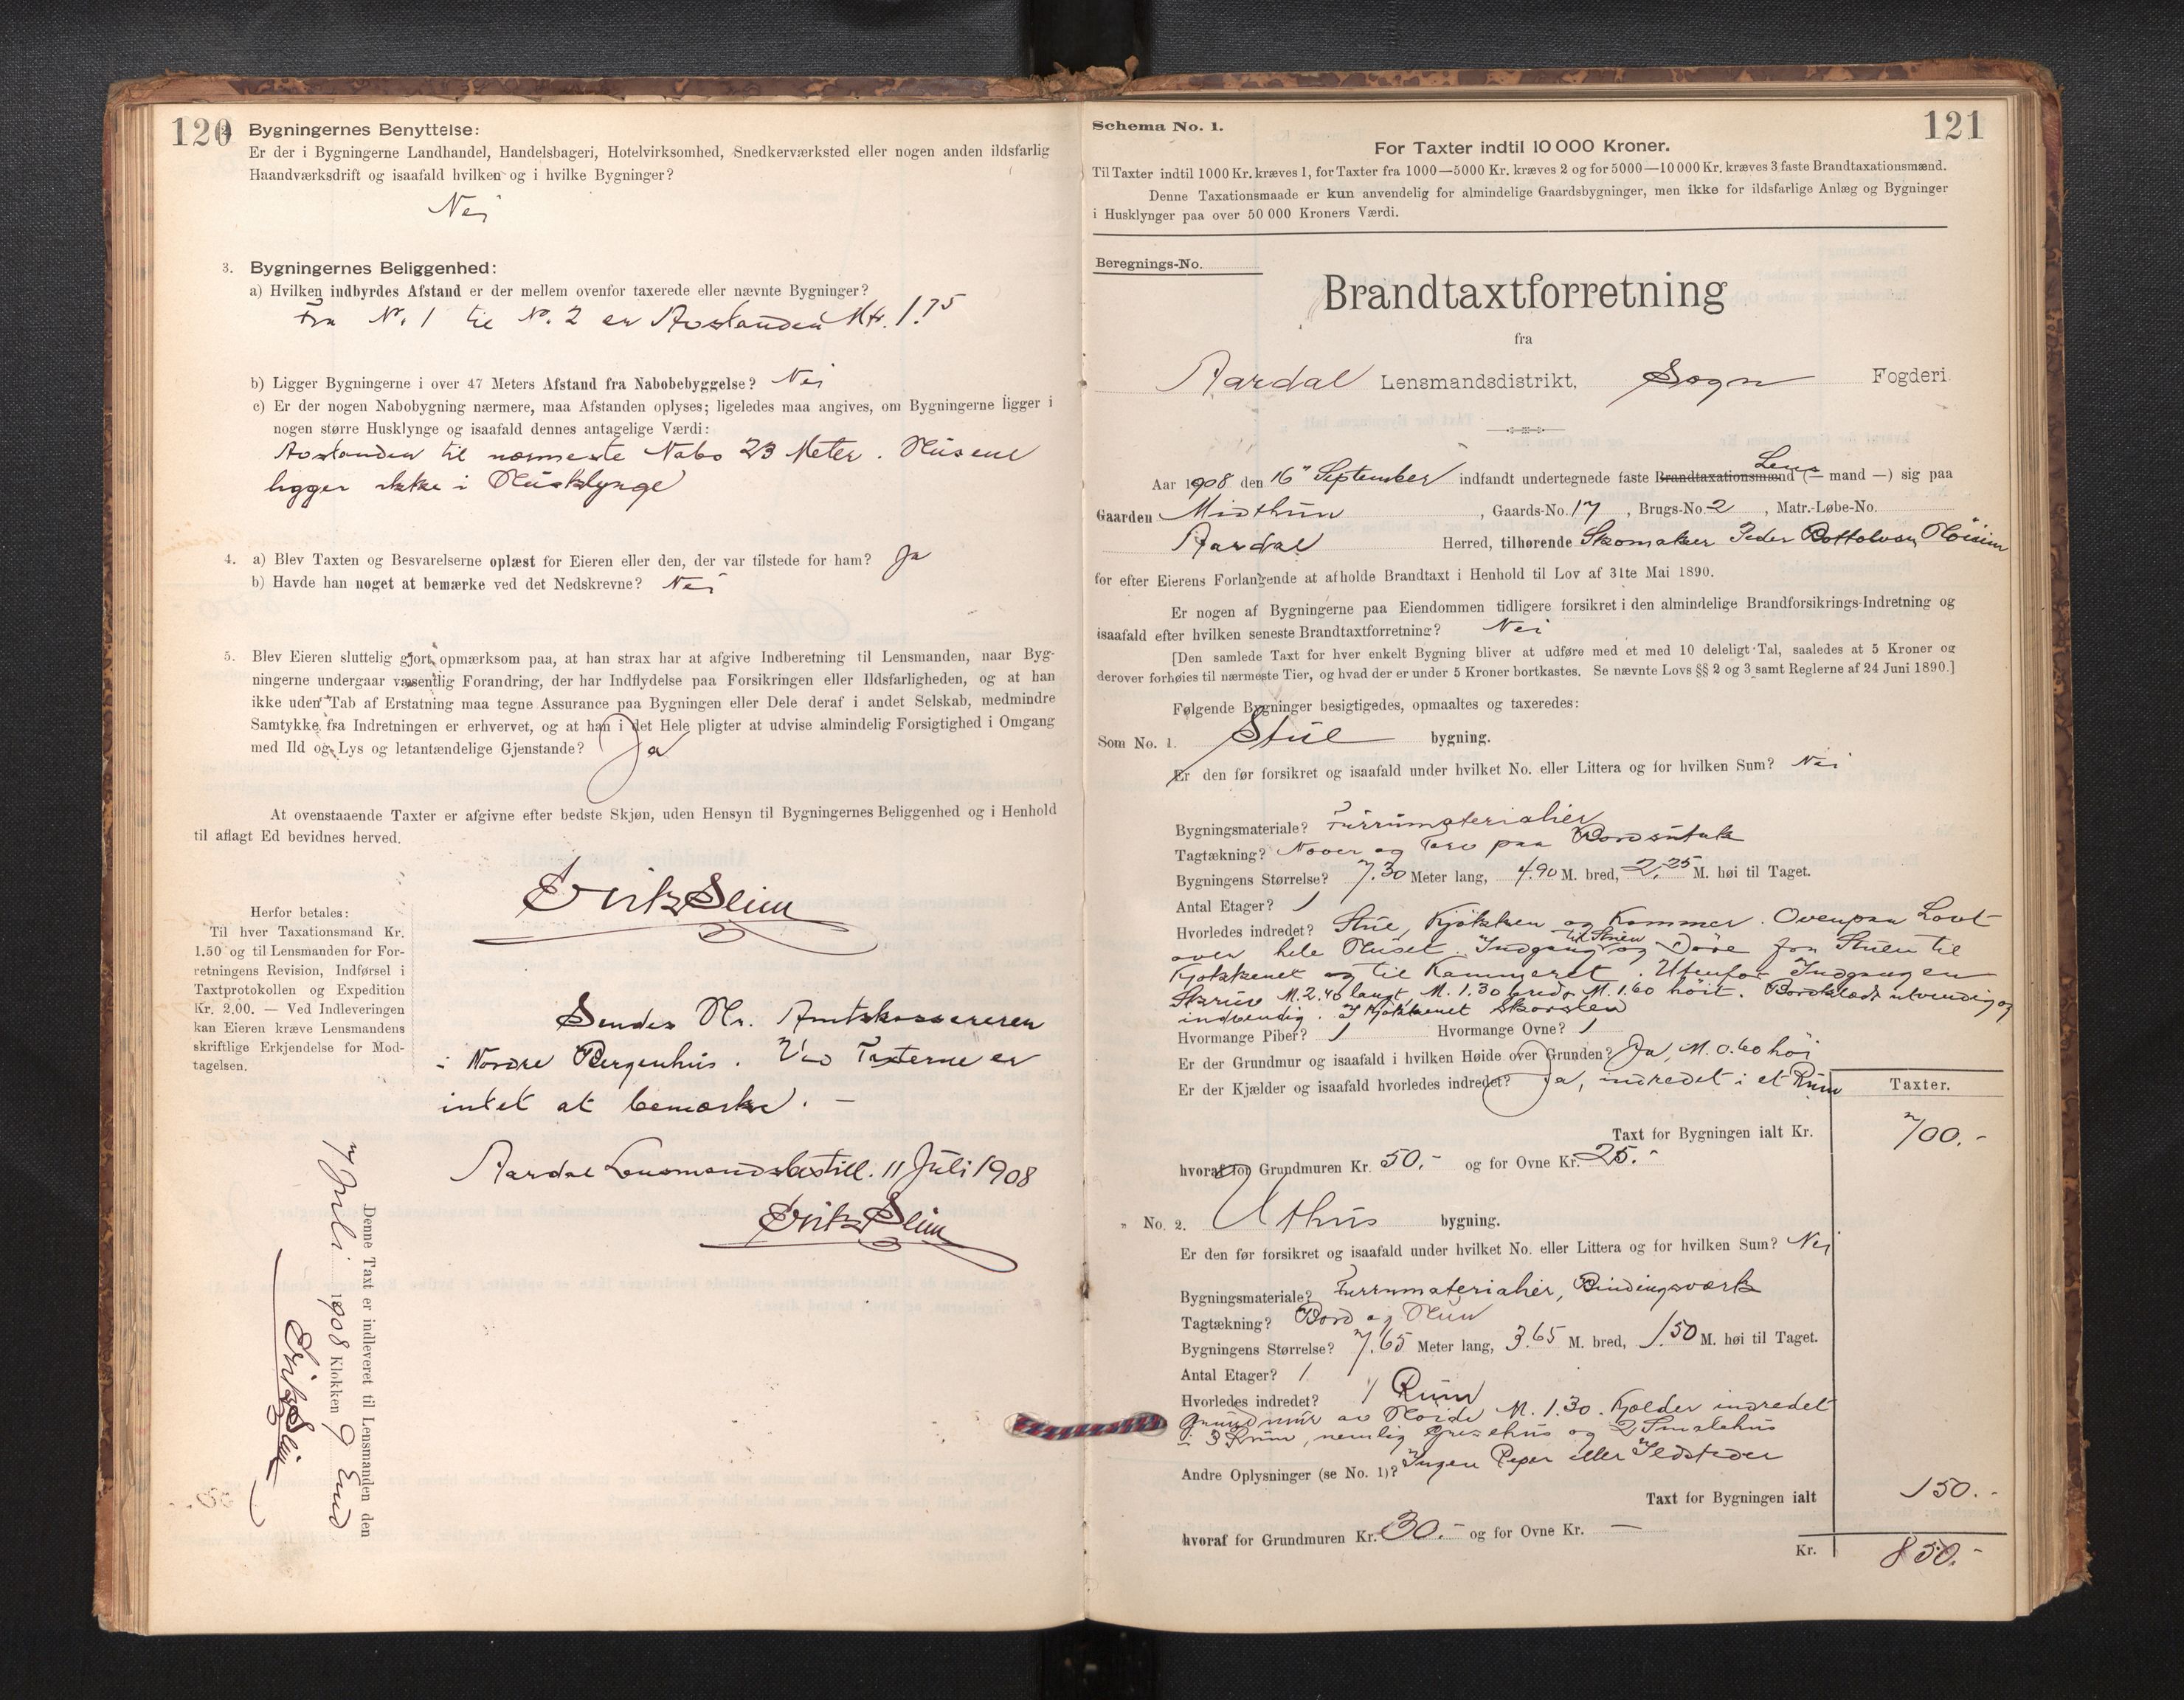 120
2. Bygningernes Benyttelse:
Er der i Bygningerne Landhandel, Handelsbageri, Hotelvirksomhed, Snedkerværksted eller nogen anden ildsfarlig
Haandværksdrift og isaafald hvilken og i hvilke Bygninger?
Nei
3. Bygningernes Beliggenhed:
a) Hvilken indbyrdes Afstand er der mellem ovenfor taxerede eller nævnte Bygninger?
Fra No. 1 til No. 2 er Avstanden Mtr. 1.75
b) Ligger Bygningerne i over 47 Meters Afstand fra Nabobebyggelse? Nei
c) Er der nogen Nabobygning nærmere, maa Afstanden oplyses; ligeledes maa angives, om Bygningerne ligger i
nogen större Husklynge og isaafald dennes antagelige Værdi:
Avstanden til nærmeste Nabo 23 Meter. Husene
ligger ikke i Husklynge
4. a) Blev Taxten og Besvarelserne oplæst for Eieren eller den, der var tilstede for ham? Ja
b) Havde han noget at bemærke ved det Nedskrevne? Nei
5. Blev Eieren sluttelig gjort opmærksom paa, at han strax har at afgive Indberetning til Lensmanden, naar Byg-
ningerne undergaar væsentlig Forandring, der har Indflydelse paa Forsikringen eller Ildsfarligheden, og at han
ikke uden Tab af Erstatning maa tegne Assurance paa Bygningen eller Dele deraf i andet Selskab, medmindre
Samtykke fra Indretningen er erhvervet, og at han i det Hele pligter at udvise almindelig Forsigtighed i Omgang
med Ild og Lys og letantændelige Gjenstande? Ja
At ovenstaaende Taxter er afgivne efter bedste Skjøn, uden Hensyn til Bygningernes Beliggenhed og i Henhold
til aflagt Ed bevidnes herved.
Erik Slim
Herfor betales:
Til hver Taxationsmand Kr.
1.50 og til Lensmanden for For-
retningens Revision, Indførsel i
Taxtprotokollen og Expedition
Kr. 2.00. — Ved Indleveringen
kan Eieren kræve Lensmandens
skriftlige Erkjendelse for Mod-
tagelsen.
Sendes Hr. Amtskassereren
i Nordre Bergenhus. Ved Taxterne er
intet at bemærke. —
Aardal Lensmandsbestill. 11 Juli 1908
Erik Slim
Denne Taxt er indleveret til Lensmanden den
7 Juli 1908 Klokken 9 Emd
Erik Slim
121
Schema No. 1.
For Taxter indtil 10 000 Kroner.
Til Taxter indtil 1000 Kr. kræves 1, for Taxter fra 1000—5000 Kr. kræves 2 og for 5000—10 000 Kr. kræves 3 faste Brandtaxationsmænd.
Denne Taxationsmaade er kun anvendelig for almindelige Gaardsbygninger, men ikke for ildsfarlige Anlæg og Bygninger
i Husklynger paa over 50 000 Kroners Værdi.
Beregnings-No.
Brandtaxtforretning
fra
Aardal Lensmandsdistrikt, Sogn Fogderi
Aar 1908 den 16 September indfandt undertegnede faste Brandtaxationsmænd Lens (— mand —) sig paa
Gaarden Midthun, Gaards-No. 17, Brugs-No. 2, Matr.-Løbe-No.
Aardal Herred, tilhørende Skomaker Peder Bottolvsen
for efter Eierens Forlangende at afholde Brandtaxt i Henhold til Lov af 31te Mai 1890.
Er nogen af Bygningerne paa Eiendommen tidligere forsikret i den almindelige Brandforsikrings-Indretning og
isaafald efter hvilken seneste Brandtaxtforretning? Nei
[Den samlede Taxt for hver enkelt Bygning bliver at udføre med et med 10 deleligt Tal, saaledes at 5 Kroner og
derover forhøies til nærmeste Tier, og hvad der er under 5 Kroner bortkastes. Se nævnte Lovs §§ 2 og 3 samt Reglerne af 24 Juni 1890.]
Følgende Bygninger besigtigedes, opmaaltes og taxeredes:
Som No. 1. Stue bygning.
Er den før forsikret og isaafald under hvilket No. eller Littera og for hvilken Sum? Nei
Bygningsmateriale? Furrumaterialier
Tagtækning? Never og Torv paa Bordsutak
Bygningens Størrelse? 7.30 Meter lang, 4.90 M. bred, 2.25 M. høi til Taget.
Antal Etager? 1
Hvorledes indredet? Stue, Kjøkken og Kammer. Ovenpaa Lovt
over hele Huset. Indgang til Stuen og Døre fra Stuen til
Kjøkkenet og til Kammeret. Utenfor Indgangen
Skruv M. 2.40 langt, M. 1.30 bredt, M. 1.60 høit. Bordklædt utvendig og
indvendig. I Kjøkkenet Skorsten
Hvormange Piber? 1 Hvormange Ovne? 1
Er der Grundmur og isaafald i hvilken Høide over Grunden? Ja, M. 0.60 høi
Er der Kjælder og isaafald hvorledes indredet? Ja, indredet i et Rum
Taxter.
Taxt for Bygningen ialt Kr. 700.-
hvoraf for Grundmuren Kr. 50.- og for Ovne Kr. 25.-
" No. 2. Uthus bygning.
Er den før forsikret og isaafald under hvilket No. eller Littera og for hvilken Sum? Nei
Bygningsmateriale? Furrumaterialier, Bindingsværk
Tagtækning? Bord og
Bygningens Størrelse? 7.65 Meter lang, 3.65 M. bred, 1.50 M. høi til Taget.
Antal Etager? 1
Hvorledes indredet? 1 Rum
Grundmur av Høide M. 1.30. Kjælder indredet
i 3 Rum, nemlig Grisehus og 2 Smalehus
Andre Oplysninger (se No. 1)? Ingen Piper eller Ildsteder
Taxt for Bygningen ialt 150.-
hvoraf for Grundmuren Kr. 30.- og for Ovne Kr. —
Kr. 850.-